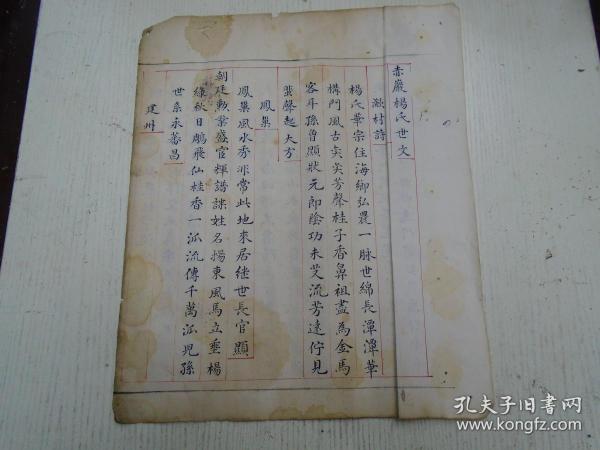 赤巖楊氏世文
漱村詩
楊氏華宗住海鄉弘農一脉世綿長潭潭華
構門風古奕奕芳聲桂子香鼻祖盡為金馬
客耳孫曾顯狀元郎陰功未艾流芳遠佇見
蜚聲起大方
鳳巢
鳳巢風水秀非常此地來居繼世長官顯
朝廷勳業盛官輝譜諜姓名揚東風馬立垂楊
綠秋日鵬飛仙桂香一派流傳千萬派兒孫
世系永蕃昌
建州
孔夫子旧书网
www.kongfz.com